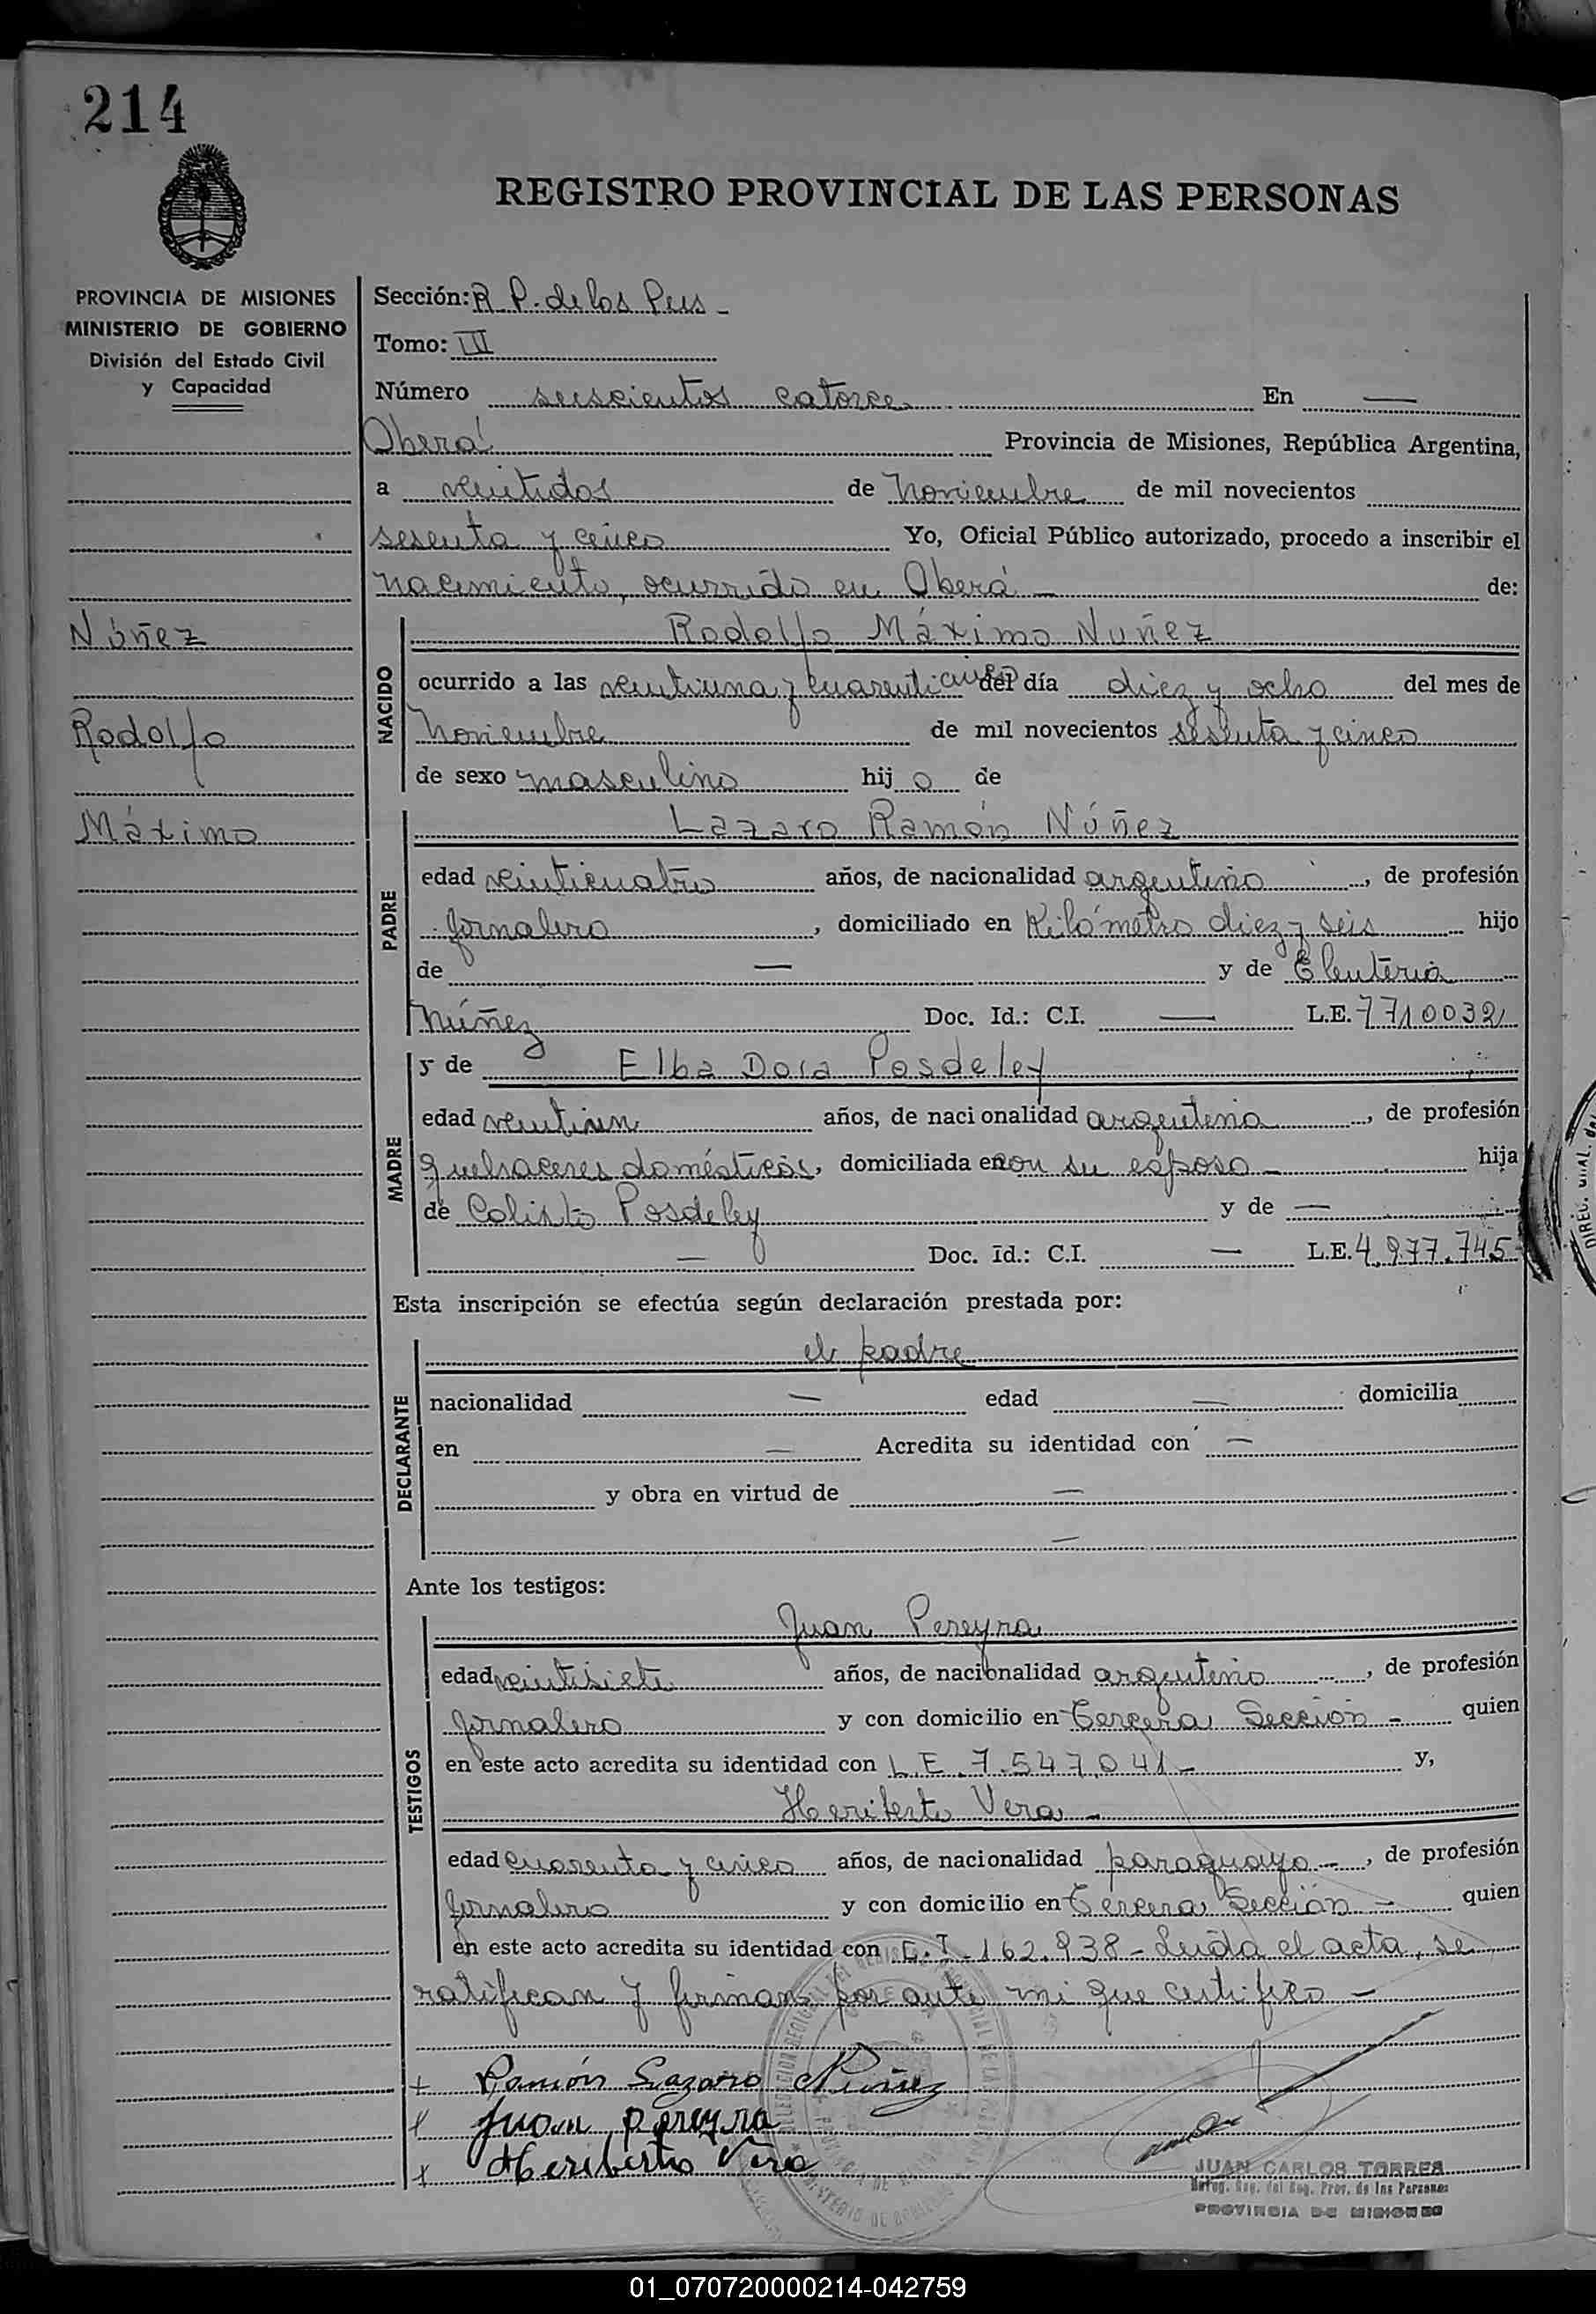 214
REGISTRO PROVINCIAL DE LAS PERSONAS
PROVINCIA DE MISIONES
MINISTERIO DE GOBIERNO
División del Estado Civil
y Capacidad
Núñez
Rodolfo
Máximo
Sección: R. P. de los Pers -
Tomo: III
Número seiscientos catorce En —
Oberá Provincia de Misiones, República Argentina,
a veintidos de noviembre de mil novecientos
sesenta y cinco Yo, Oficial Público autorizado, procedo a inscribir el
nacimiento, ocurrido en Oberá — de:
NACIDO
Rodolfo Máximo Nuñez
ocurrido a las veintiuna y cuarenticinco del día diez y ocho del mes de
noviembre de mil novecientos sesenta y cinco
de sexo masculino hij o de
PADRE
Lazaro Ramón Núñez
edad veinticuatro años, de nacionalidad argentino, de profesión
jornalero, domiciliado en Kilómetro diez y seis hijo
de — y de Eleuteria
Núñez Doc. Id.: C.I. — L.E. 7710032
MADRE
y de Elba Dora Posdeley
edad veintiun años, de nacionalidad argentina, de profesión
quehaceres domésticos, domiciliada en con su esposo - hija
de Calixto Posdeley y de —
— Doc. Id.: C.I. — L.E. 4.977.745-
Esta inscripción se efectúa según declaración prestada por:
DECLARANTE
el padre
nacionalidad — edad — domicilia
en — Acredita su identidad con —
y obra en virtud de —
—
Ante los testigos:
TESTIGOS
Juan Pereyra
edad veintisiete años, de nacionalidad argentino, de profesión
jornalero y con domicilio en Tercera Sección - quien
en este acto acredita su identidad con L.E. 7.547.041- y,
Heriberto Vera -
edad cuarenta y cinco años, de nacionalidad paraguayo -, de profesión
jornalero y con domicilio en Tercera Sección - quien
en este acto acredita su identidad con C.I. 162.938 - Leída el acta, se
ratifican y firman por ante mi que certifico -
Ramón Lazaro Núñez
Juan pereyra
Heriberto Vera
JUAN CARLOS TORRES
Deleg. Reg. del Reg. Prov. de las Personas
PROVINCIA DE MISIONES
01_070720000214-042759